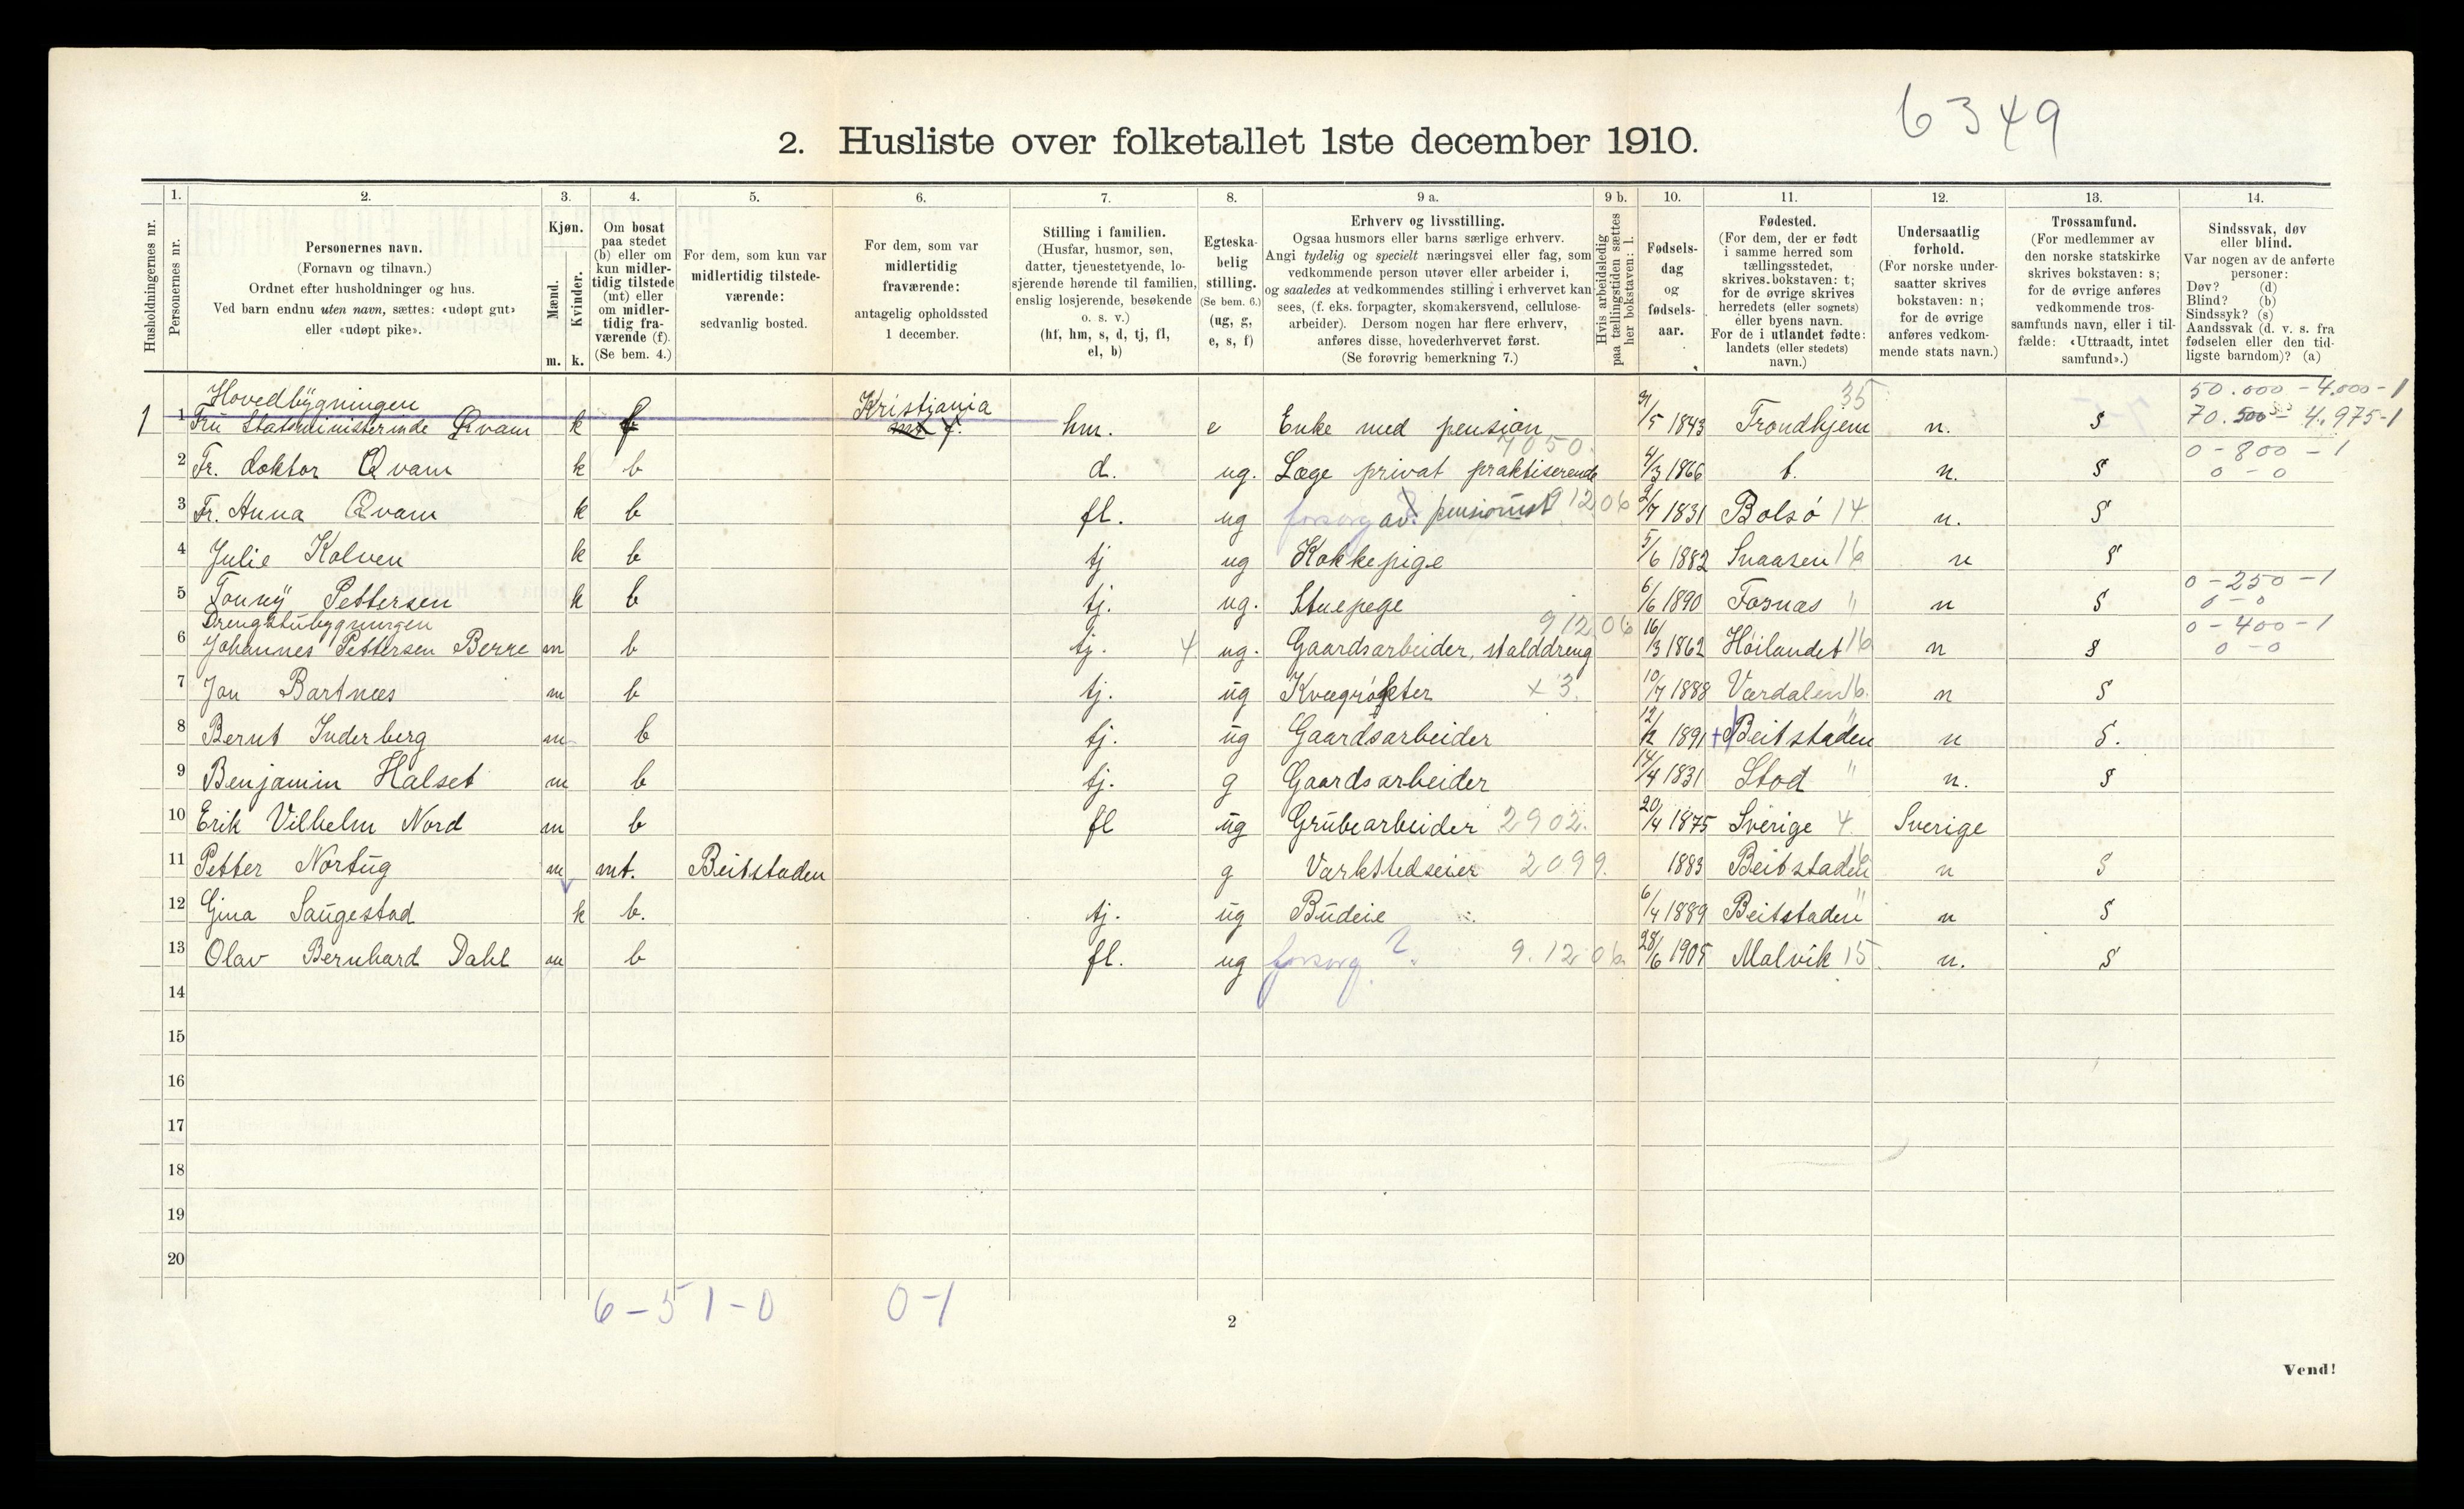 6349
2. Husliste over folketallet 1ste december 1910.
Husholdningernes nr.
1.
Personernes nr.
2.
Personernes navn.
(Fornavn og tilnavn.)
Ordnet efter husholdninger og hus.
Ved barn endnu uten navn, sættes: «udøpt gut»
eller «udøpt pike».
3.
Kjøn.
Mænd.
Kvinder.
m. k.
4.
Om bosat
paa stedet
(b) eller om
kun midler-
tidig tilstede
(mt) eller
om midler-
tidig fra-
værende (f).
(Se bem. 4.)
5.
For dem, som kun var
midlertidig tilstede-
værende:
sedvanlig bosted.
6.
For dem, som var
midlertidig
fraværende:
antagelig opholdssted
1 december.
7.
Stilling i familien.
(Husfar, husmor, søn,
datter, tjenestetyende, lo-
sjerende hørende til familien,
enslig losjerende, besøkende
o. s. v.)
(hf, hm, s, d, tj, fl,
el, b)
8.
Egteska-
belig
stilling.
(Se bem. 6.)
(ug, g,
e, s, f)
9 a.
Erhverv og livsstilling.
Ogsaa husmors eller barns særlige erhverv.
Angi tydelig og specielt næringsvei eller fag, som
vedkommende person utøver eller arbeider i,
og saaledes at vedkommendes stilling i erhvervet kan
sees, (f. eks. forpagter, skomakersvend, cellulose-
arbeider). Dersom nogen har flere erhverv,
anføres disse, hovederhvervet først.
(Se forøvrig bemerkning 7.)
9 b.
Hvis arbeidsledig
paa tællingstiden sættes
her bokstaven: l.
10.
Fødsels-
dag
og
fødsels-
aar.
11.
Fødested.
(For dem, der er født
i samme herred som
tællingsstedet,
skrives bokstaven: t;
for de øvrige skrives
herredets (eller sognets)
eller byens navn.
For de i utlandet fødte:
landets (eller stedets)
navn.)
12.
Undersaatlig
forhold.
(For norske under-
saatter skrives
bokstaven: n;
for de øvrige
anføres vedkom-
mende stats navn.)
13.
Trossamfund.
(For medlemmer av
den norske statskirke
skrives bokstaven: s;
for de øvrige anføres
vedkommende tros-
samfunds navn, eller i til-
fælde: «Uttraadt, intet
samfund».)
14.
Sindssvak, døv
eller blind.
Var nogen av de anførte
personer:
Døv? (d)
Blind? (b)
Sindssyk? (s)
Aandssvak (d. v. s. fra
fødselen eller den tid-
ligste barndom)? (a)
Hovedbygningen Kristiania 35 50.000 - 4.000 - 1
1 1 Fru Statsministerinde Qvam k f hm. e Enke med pension 31/5 1843 Trondhjem n. s 70.500 - 4.975-1
7050. 0 - 800 - 1
2 Fr. doktor Qvam k b d. ug. Læge privat praktiserende 4/3 1866 t. n. s 0 - 0
3 Fr. Anna Qvam k b fl. ug forsørg av pensionist 91206 2/7 1831 Bolsö 14 n. s
4 Julie Kolven k b tj ug Kokkepige 5/6 1882 Snaasen 16 n s
0 - 250 - 1
5 Tonny Pettersen k b tj. ug. Stuepege 6/6 1890 Fosnas " n s 0 - 0
Drengstubygningen 91206 0 - 400 - 1
6 Johannes Pettersen Berre m b tj. 4 ug. Gaardsarbeider, stalddreng 16/3 1862 Höilandet 16 n s 0 - 0
7 Jon Bartnes m b tj. ug Kvægrögter x 3. 10/7 1888 Værdalen 16. n s
8 Bernt Inderberg m b tj. ug Gaardsarbeider 12/12 1891 + Beitstaden " n s.
9 Benjamin Halset m b tj. g Gaardsarbeider 14/4 1831 Stod " n. s
10 Erik Vilhelm Nord m b fl ug Grubearbeider 2902. 20/4 1875 Sverige 4. Sverige
11 Petter Nortug m mt. Beitstaden g Værkstedseier 2099. 1883 Beitstaden n s
12 Gina Saugestad k b. tj. ug Budeie 6/4 1889 Beitstaden " n s
13 Olav Bernhard Dahl m b fl. ug forsørg ? 9.12 06. 28/6 1905 Malvik 15. n. s
14
15
16
17
18
19
20
6 - 5 1 - 0 0 - 1
2
Vend!